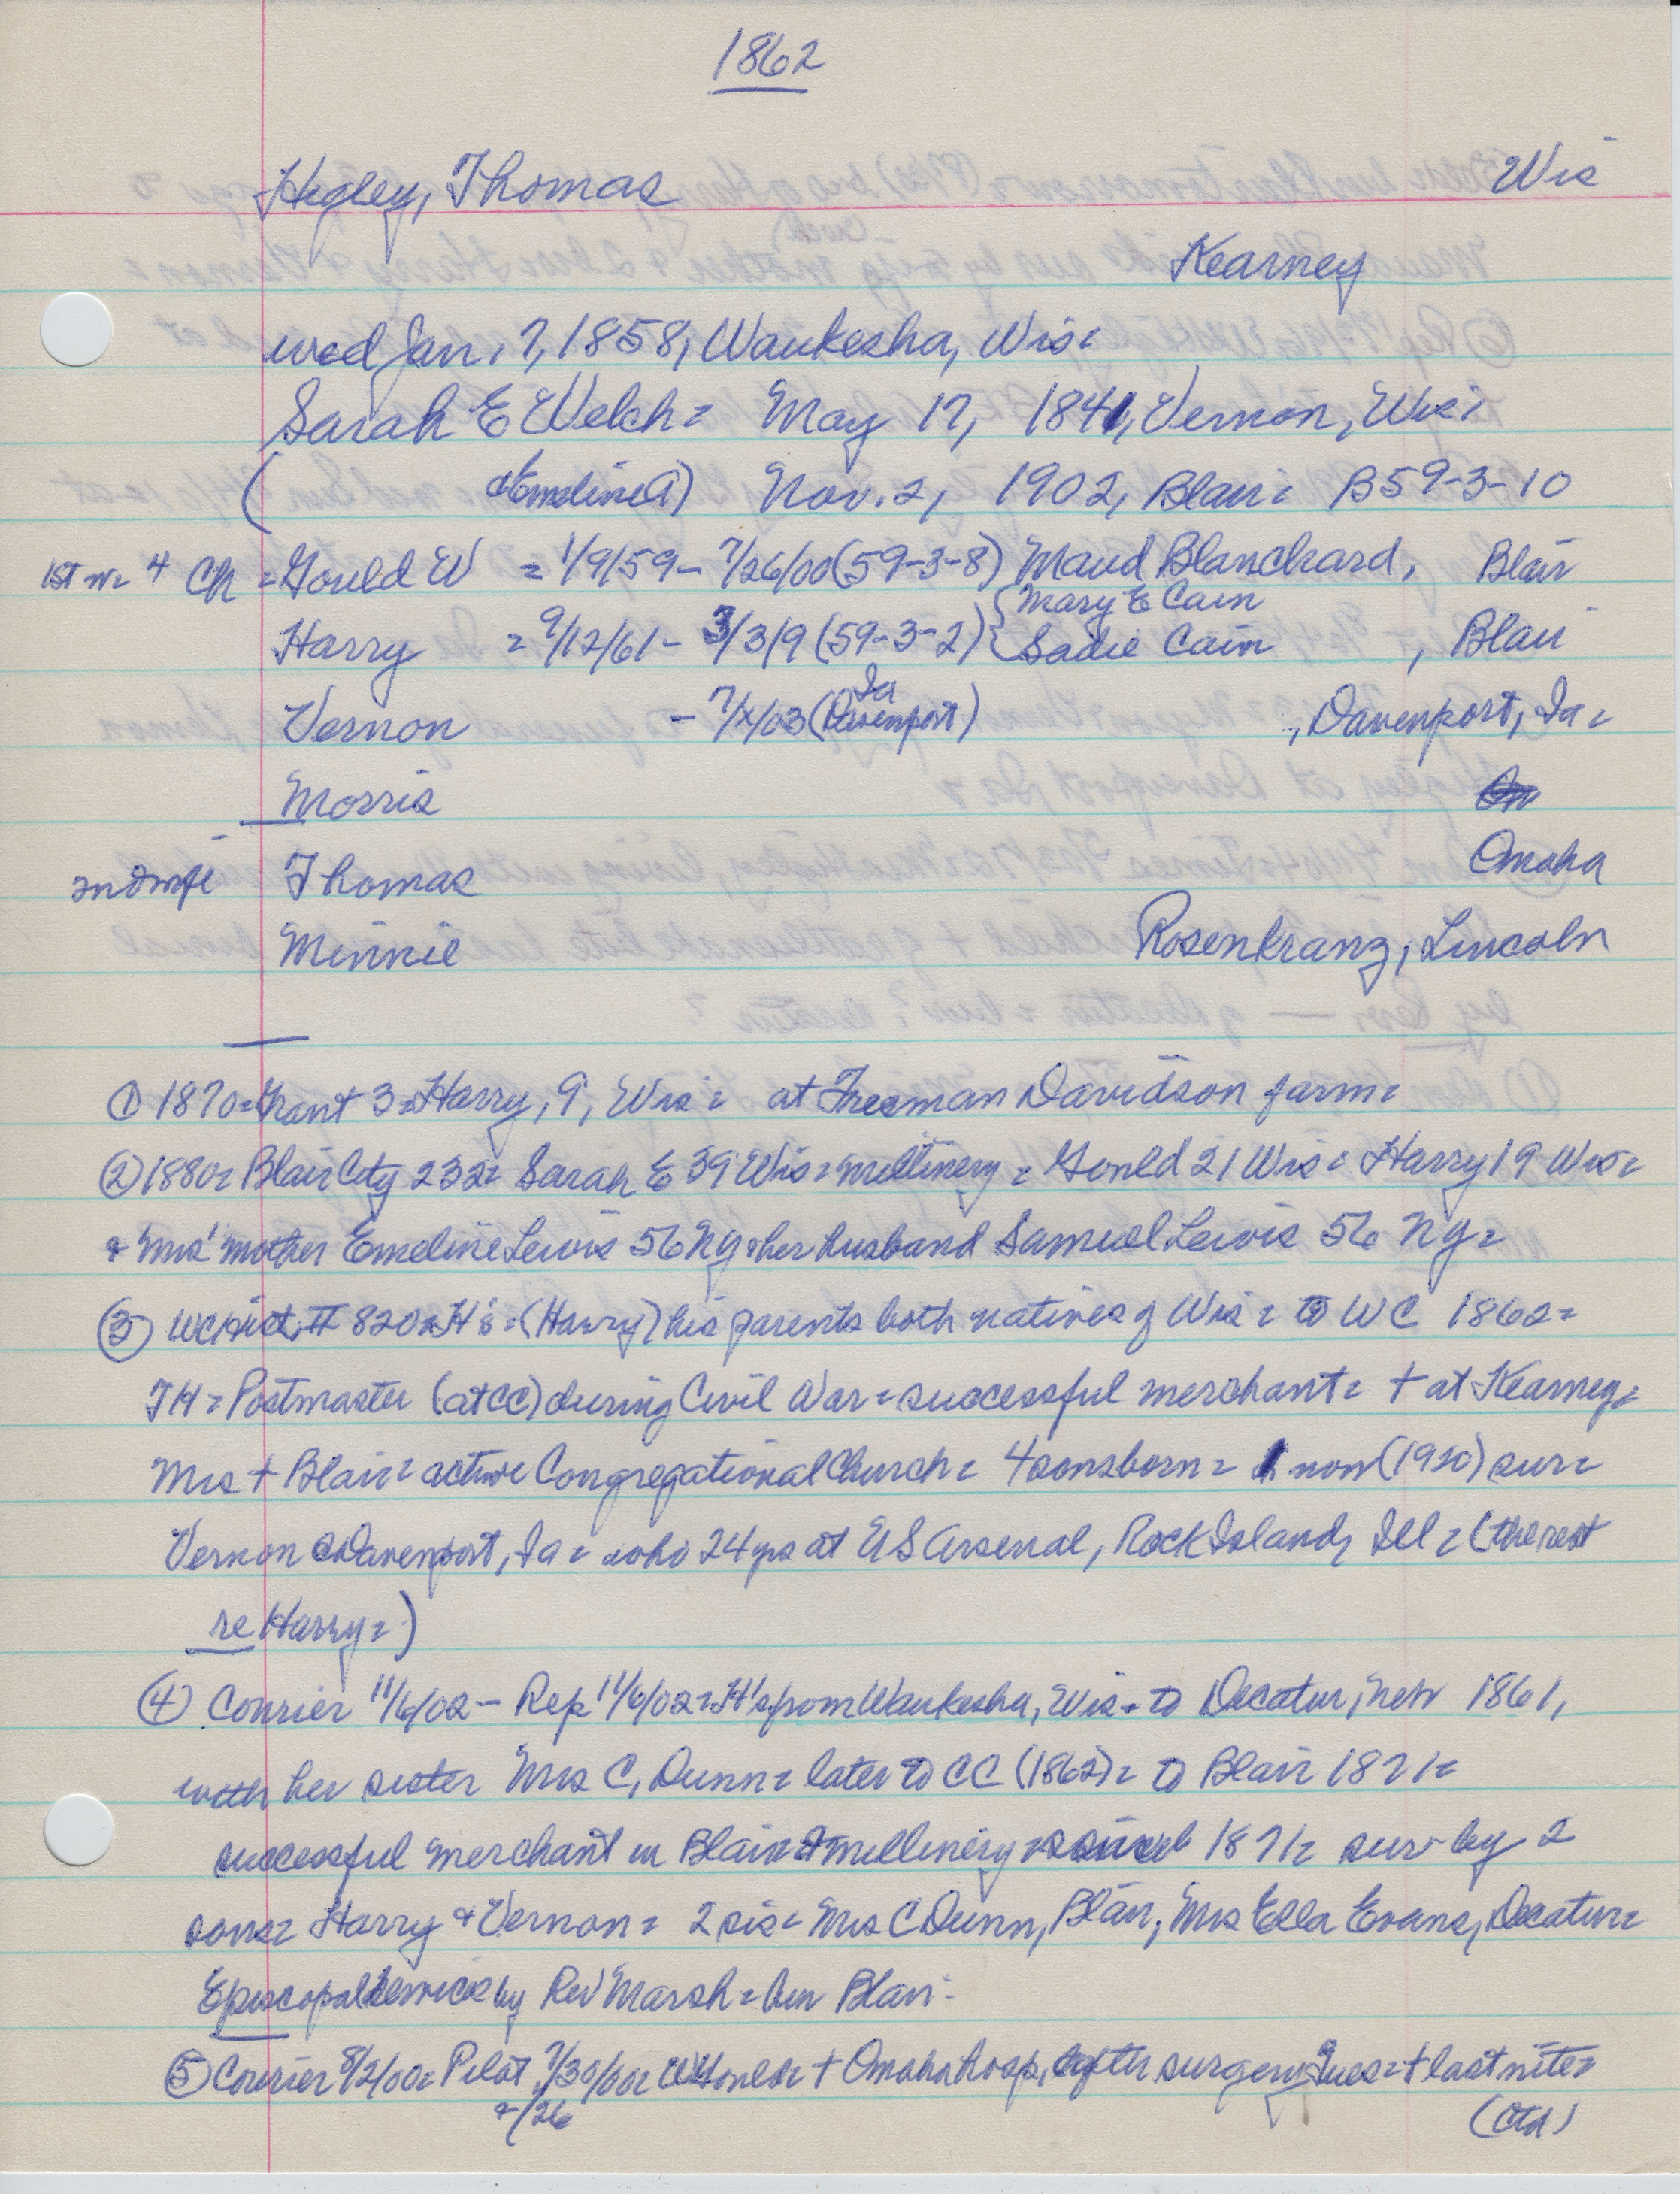 1862
Hegley, Thomas Wis
Kearney
wed Jan. 7, 1858, Waukesha, Wis=
Sarah E Welch = May 17, 1841, Vernon, Wis=
( & Emeline A) Nov. 2, 1902, Blair= B59-3-10
1st m= 4 Ch = Gould W = 1/9/59 - 7/26/00 (59-3-8) Maud Blanchard, Blair
Mary E Cain
Harry = 9/12/61 - 3/3/9 (59-3-2) { Sadie Cain , Blair
Vernon - 7/x/03 (Davenport Ia) , Davenport, Ia=
Morris
Omaha
2nd wife Thomas
Minnie Rosenkranz, Lincoln
① 1870=Grant 3=Harry, 9, Wis= at Freeman Davidson farm=
② 1880= Blair City 232= Sarah E 39 Wis=millinery= Gould 21 Wis= Harry 19 Wis=
& Mrs' mother Emeline Lewis 56 NY & her husband Samuel Lewis 56 NY=
③ WCHist. II 820=H's=(Harry) his parents both natives of Wis= to WC 1862=
TH= Postmaster (at CC) during Civil War=successful merchant= + at Kearney=
Mrs + Blair= active Congregational Church= 4 sons born= 1 now (1930) sur=
Vernon @ Davenport, Ia= who 24 yrs at US Arsenal, Rock Island, Ill= (the rest
re Harry=)
④ Courier 11/6/02 - Rep 11/6/02=H's from Waukesha, Wis. to Decatur, Neb 1861,
with her sister Mrs C, Dunn= later to CC (1862)= to Blair 1871=
successful merchant in Blair millinery since 1871= sur by 2
sons= Harry & Vernon= 2 sis= Mrs C Dunn, Blair, Mrs Ella Evans, Decatur=
Episcopal service by Rev Marsh= bur Blair=
⑤ Courier 8/2/00= Pilot 7/30/00= + Omaha hosp, after surgery Tues=+ last nite=
& /26 (Ctd)